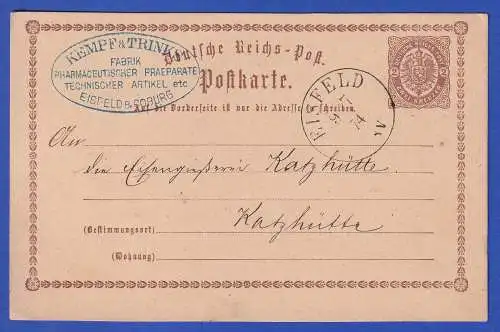 KEMPF & TRINKS
FABRIK
PHARMACEUTISCHER PRAEPARATE
TECHNISCHER ARTIKEL etc
EISFELD B. COBURG
Deutsche Reichs-Post.
Postkarte.
Auf der Vorderseite ist nur die Adresse zu schreiben.
EISFELD
An
die Eisengießerei Katzhütte
Katzhütte
(Bestimmungsort)
(Wohnung)